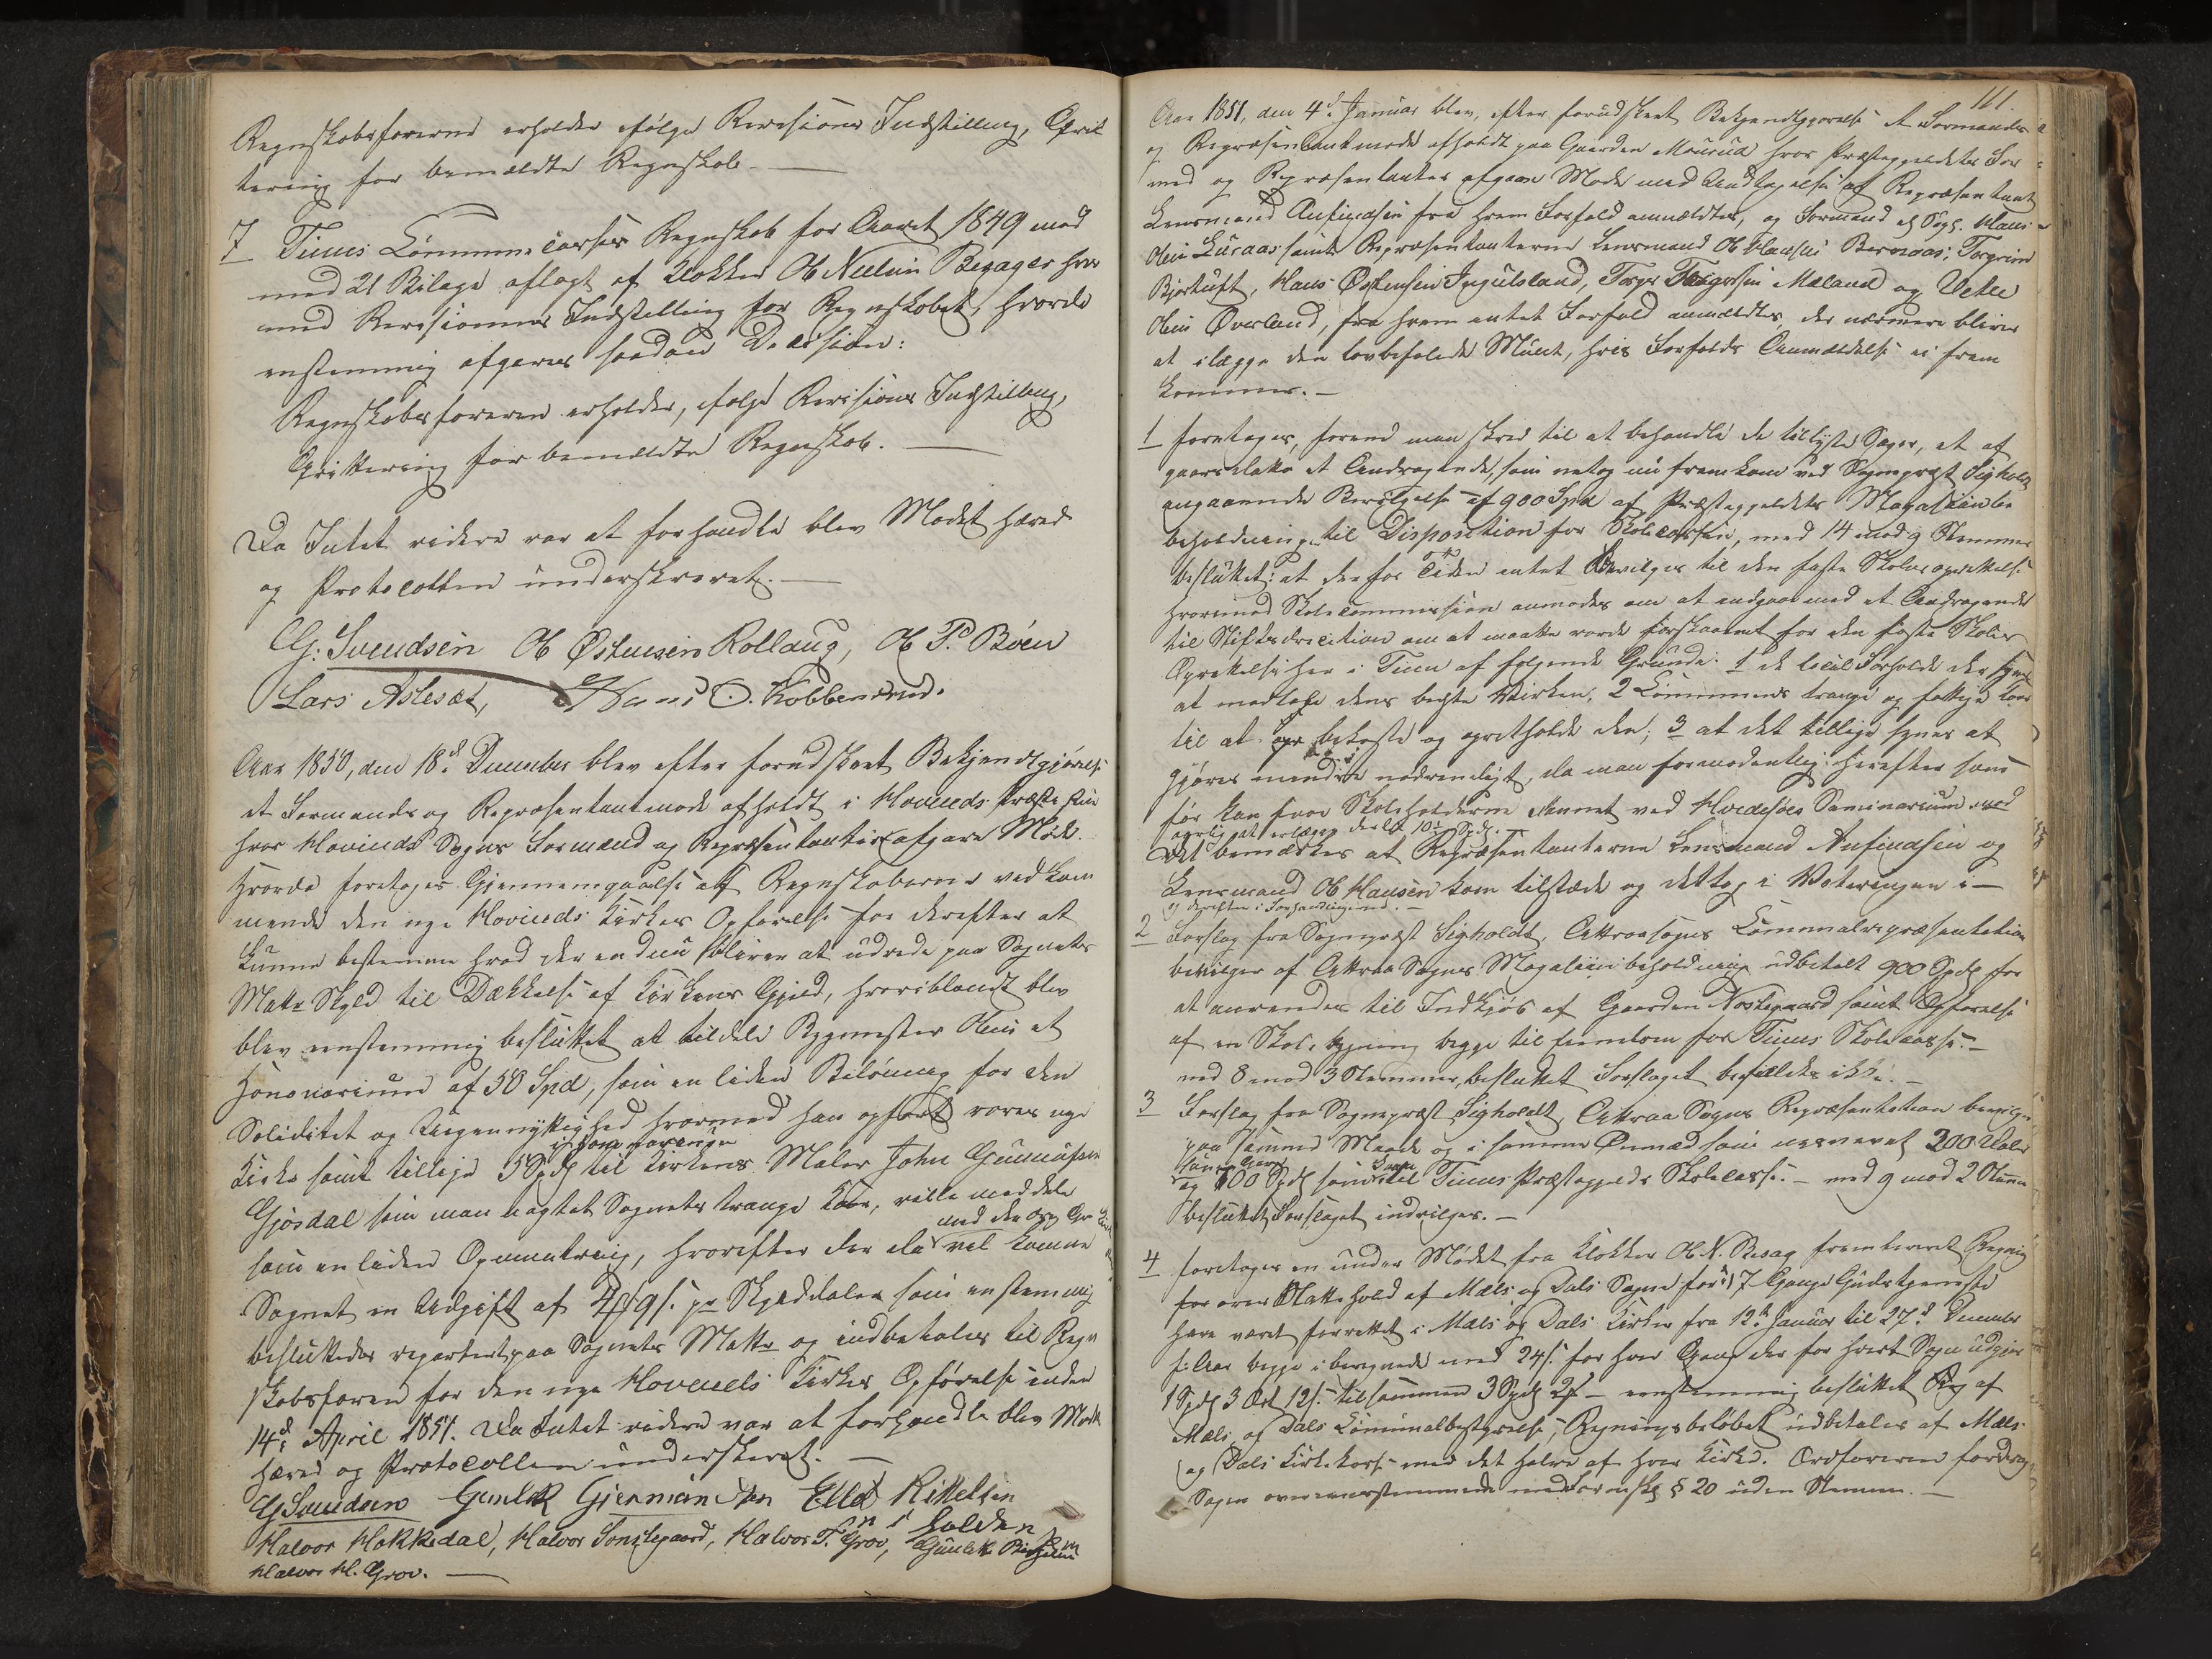 Regnskabsføreren erholder ifølge Revisions Indstilling, Qvit
tering for bemældte Regnskab. —
7 Tinns Communecasses Regnskab for Aaret 1849 med
med 21 Bilage aflagt af Klokker Ole Neelsen Besager hvor
med Revisionens Indstilling for Regnskabet, hvorda
enstemmig afgaves saadan Decision:
Regnskabsføreren erholder, ifølge Revisions Indstilling,
Qvittering for bemældte Regnskab. —
Da Intet videre var at forhandle blev Mødet hævet
og Protocollen underskrevet. —
G. Svendsen Ole Østensen Rollaug, Ole P. Bøen
Lars Aslesøt, Hans O. Kobbenrud.
Aar 1850, den 18d December blev efter forudskeet Bekjendtgjørelse
et Formands og Repræsentantmøde afholdt i Hovinds Præste stue
hvor Hovinds Sogns Formænd og Repræsentanter afgave Møde.
Hvorda foretoges Gjennemgaaelse af Regnskaberne vedkom
mende den nye Hovinds Kirkes Opførelse for derefter at
kunne bestemme hvad der endnu bliver at udrede paa Sognets
Matr Skyld til Dækkelse af Kirkens Gjeld, hvoriblandt blev
blev eenstemmig besluttet at tildele Bygmester Olsen et
Honorarium af 50 Spd, som en liden Belønning for den
Soliditet og Uegennyttighed hvormed han opført vores nye
Kirke samt tillige 5 Spd til Kirkens Maler John Gunnufsen
Gjøsdal som man uagtet Sognets trange Kaar, ville meddele
som en liden Opmuntring, hvorefter der da vil komme
Sognet en Udgift af pr Skylddaler som enstemmig
besluttedes repartert paa Sognets Matr og indbetales til Regn
skabsføren for den nye Hovinds Kirkes Opførelse inden
14d April 1851. Da Intet videre var at forhandle blev Mødet
hævet og Protocollen underskrevet. —
G Svendsen Gunlek Giermundsen Elled Kittelsen
Halvor Hokkedal, Halvor Sønstegaard, Halvor T. Grov, Gunlek
Halvor H. Grov. —
161.
Aar 1851, den 4d Januar blev, efter forudskeet Bekjendtgjørelse et Formands
og Repræsentantmøde afholdt paa Gaarden Maurud hvor Præstegjeldets For
mænd og Repræsentanter afgave Møde med Undtagelse af Repræsentant
Lensmand Anfindsen fra hvem Forfald anmældtes, og Formand Hans
Olsen Luraas samt Repræsentanterne Lensmand Ole Hansen Bernaas, Torgrim
Bjørtuft, Hans Østensen Ingulsland, Torger Torgersen Mæland og
Olsen Øverland, fra hvem intet Forfald anmældtes, der nærmere bliver
at ilægge den lovbefalede Mulct, hvis Forfalds Anmældelse ei frem
kommer. —
1 foretoges, forend man skred til at behandle de tillyste Sager, et af
et Andragende, som netop nu fremkom ved Sognepræst Sigholdt
angaaende Bevilgelse af 900 Spd af Præstegjeldets Magasin
beholdning til Disposition for Skolecassen, med 14 mod 9 Stemmer
besluttet: at der for Tiden intet bevilges til den faste Skoles oprettelse
hvorimod Skolecommission anmodes om at indgaae med et Andragende
til Stiftsdirection om at maatte vorde forskaanet for den faste Skoles
Oprettelse her i Tinn af følgende Grunde: 1 de local Forholde der synes
at modtale dens bedste Virken, 2 Communens trange og fattige Kaar
til at bekoste og opretholde den; 3 at det tillige synes at
gjøres mindre nødvendigt, da man formodentlig herefter som
før kan faae Skoleholdere dannet ved Hvidesøes Seminarium med
aarlig at erlægge dertil 10 Spd. —
Det bemærkes at Repræsentanterne Lensmand Anfindsen og
Lensmand Ole Hansen kom tilstæde og deltog i Voteringen i —
og derefter i Forhandlingerne. —
2 Forslag fra Sognepræst Sigholdt, Attraasogns Communalrepræsentation
bevilger af Attraa Sogns Magasinbeholdning udbetalt 900 Spd for
at anvendes til Indkjøb af Gaarden samt Opførelse
af en Skolebygning begge til Eiendom for Tinns Skolecasse. —
med 8 mod 3 Stemmer besluttet Forslaget bifaldes ikke. —
3 Forslag fra Sognepræst Sigholdt, Attraa Sogns Repræsentation bevilger
paa samme Maade og i samme Øiemed som nævnt 200 Daler
og 100 Spd som til Tinns Præstegjelds Skolecasse. — med 9 mod 2 Stemmer
besluttet Forslaget indvilges. —
4 foretoges en under Mødet fra Klokker Ole N. Besag fremleveret Regning
for Matte hold af Mæls og Dals Sogne for 17 Gange Gudstjeneste
have været forrettet i Mæls og Dals Kirker fra 12te Januar til 27d December
f: Aar begge iberegnede med 24s. for hver Gang der for hvert Sogn udgjør
1 Spd 3 Ort 12s. tilsammen 3 Spd — eenstemmig besluttet af
Mæls og Dals Communalbestyrelse, Regningsbeløbet udbetales af Mæls
og Dals Kirkekasse med det halve af hver Kirke. Ordføreren fordrog
Sagen overeensstemmende med Formsk § 20 uden Stemme. —